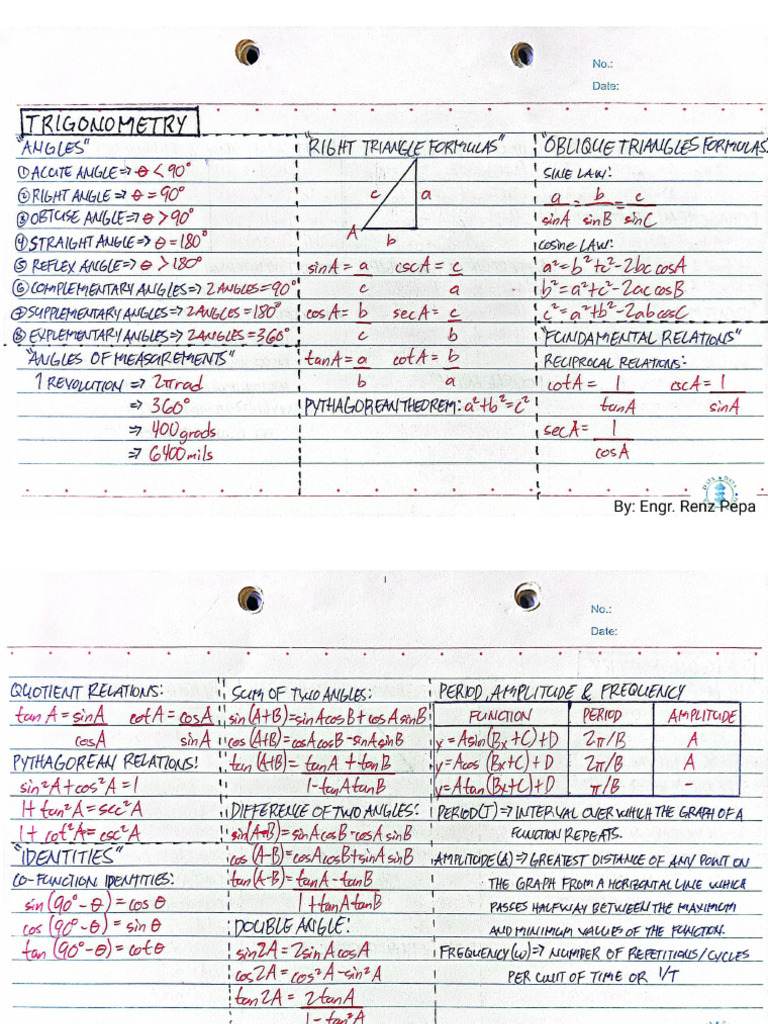 No.:
Date:
TRIGONOMETRY
"ANGLES"
① ACCUTE ANGLE ⇒ θ < 90°
② RIGHT ANGLE ⇒ θ = 90°
③ OBTUSE ANGLE ⇒ θ > 90°
④ STRAIGHT ANGLE ⇒ θ = 180°
⑤ REFLEX ANGLE ⇒ θ > 180°
⑥ COMPLEMENTARY ANGLES ⇒ 2 ANGLES = 90°
⑦ SUPPLEMENTARY ANGLES ⇒ 2 ANGLES = 180°
⑧ EXPLEMENTARY ANGLES ⇒ 2 ANGLES = 360°
"ANGLES OF MEASUREMENTS"
1 REVOLUTION ⇒ 2π rad
⇒ 360°
⇒ 400 grads
⇒ 6400 mils
"RIGHT TRIANGLE FORMULAS"
c a
A
b
sinA = a/c cscA = c/a
cosA = b/c secA = c/b
tanA = a/b cotA = b/a
PYTHAGOREAN THEOREM: a² + b² = c²
"OBLIQUE TRIANGLES FORMULAS
SINE LAW:
a/sinA = b/sinB = c/sinC
COSINE LAW:
a² = b² + c² - 2bc cosA
b² = a² + c² - 2ac cosB
c² = a² + b² - 2ab cosC
"FUNDAMENTAL RELATIONS"
RECIPROCAL RELATIONS:
cotA = 1/tanA cscA = 1/sinA
secA = 1/cosA
By: Engr. Renz Pepa
No.:
Date:
QUOTIENT RELATIONS:
tan A = sinA/cosA cotA = cosA/sinA
PYTHAGOREAN RELATIONS:
sin²A + cos²A = 1
1 + tan²A = sec²A
1 + cot²A = csc²A
"IDENTITIES"
CO-FUNCTION IDENTITIES:
sin (90° - θ) = cos θ
cos (90° - θ) = sin θ
tan (90° - θ) = cot θ
SUM OF TWO ANGLES:
sin (A+B) = sinA cosB + cosA sinB
cos (A+B) = cosA cosB - sinA sinB
tan (A+B) = tanA + tanB/1 - tanA tanB
DIFFERENCE OF TWO ANGLES:
sin(A-B) = sinA cosB - cosA sinB
cos (A-B) = cosA cosB + sinA sinB
tan (A-B) = tanA - tanB/1 + tanA tanB
DOUBLE ANGLE:
sin2A = 2sinA cosA
cos2A = cos²A - sin²A
tan2A = 2tanA/1 - tan²A
PERIOD, AMPLITUDE & FREQUENCY
FUNCTION PERIOD AMPLITUDE
y = Asin (Bx+C) + D 2π/B A
y = Acos (Bx+C) + D 2π/B A
y = Atan (Bx+C) + D π/B -
PERIOD(T) ⇒ INTERVAL OVER WHICH THE GRAPH OF A
FUNCTION REPEATS.
AMPLITUDE(A) ⇒ GREATEST DISTANCE OF ANY POINT ON
THE GRAPH FROM A HORIZONTAL LINE WHICH
PASSES HALFWAY BETWEEN THE MAXIMUM
AND MINIMUM VALUES OF THE FUNCTION.
FREQUENCY(ω) ⇒ NUMBER OF REPETITIONS/CYCLES
PER UNIT OF TIME OR 1/T